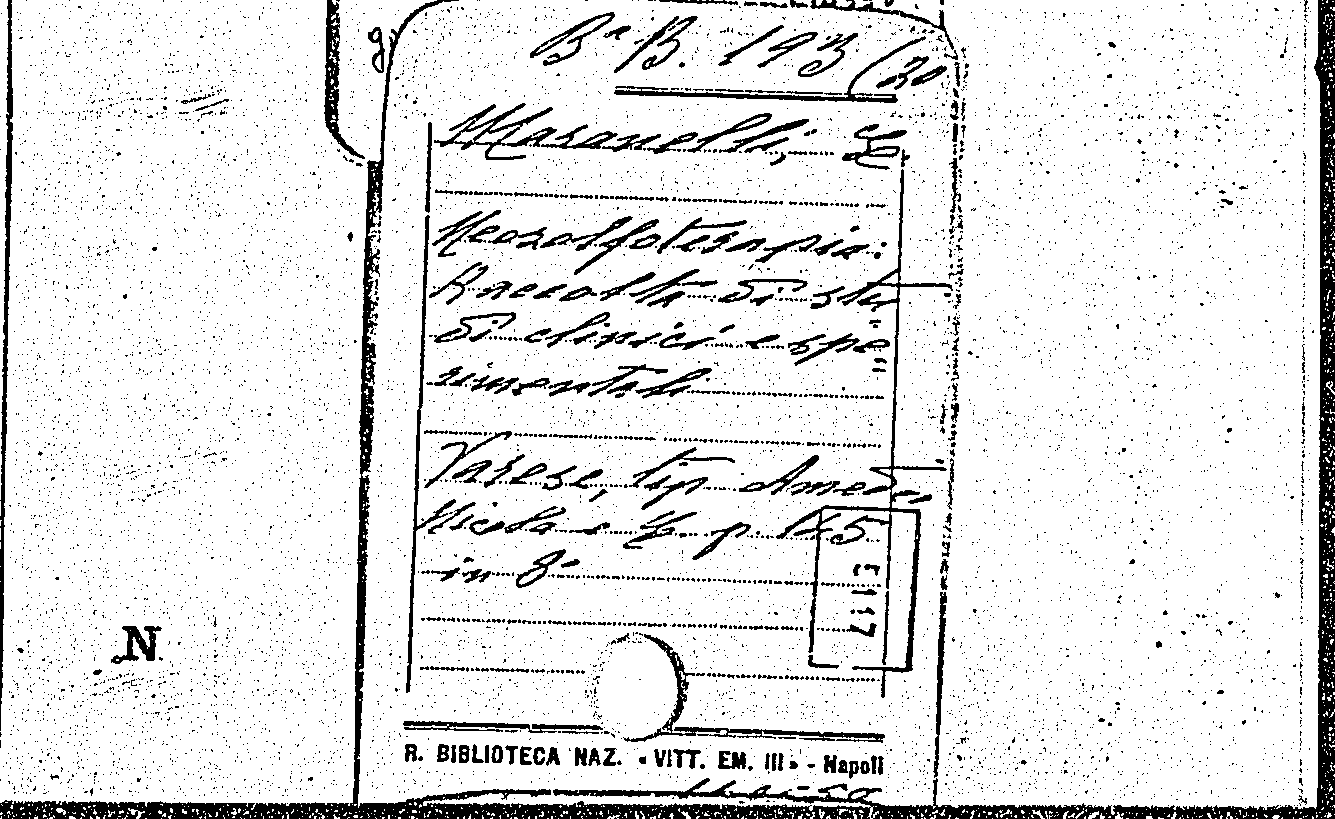 Bª B. 193 (20
Maranelli, E.
Neosolfoterapia.
Raccolta di stu
di clinici e spe
rimentali
Varese, tip Amedeo
Nicola e C. p. 145
in 8°
E 117
N
R. BIBLIOTECA NAZ. « VITT. EM. III » - Napoli